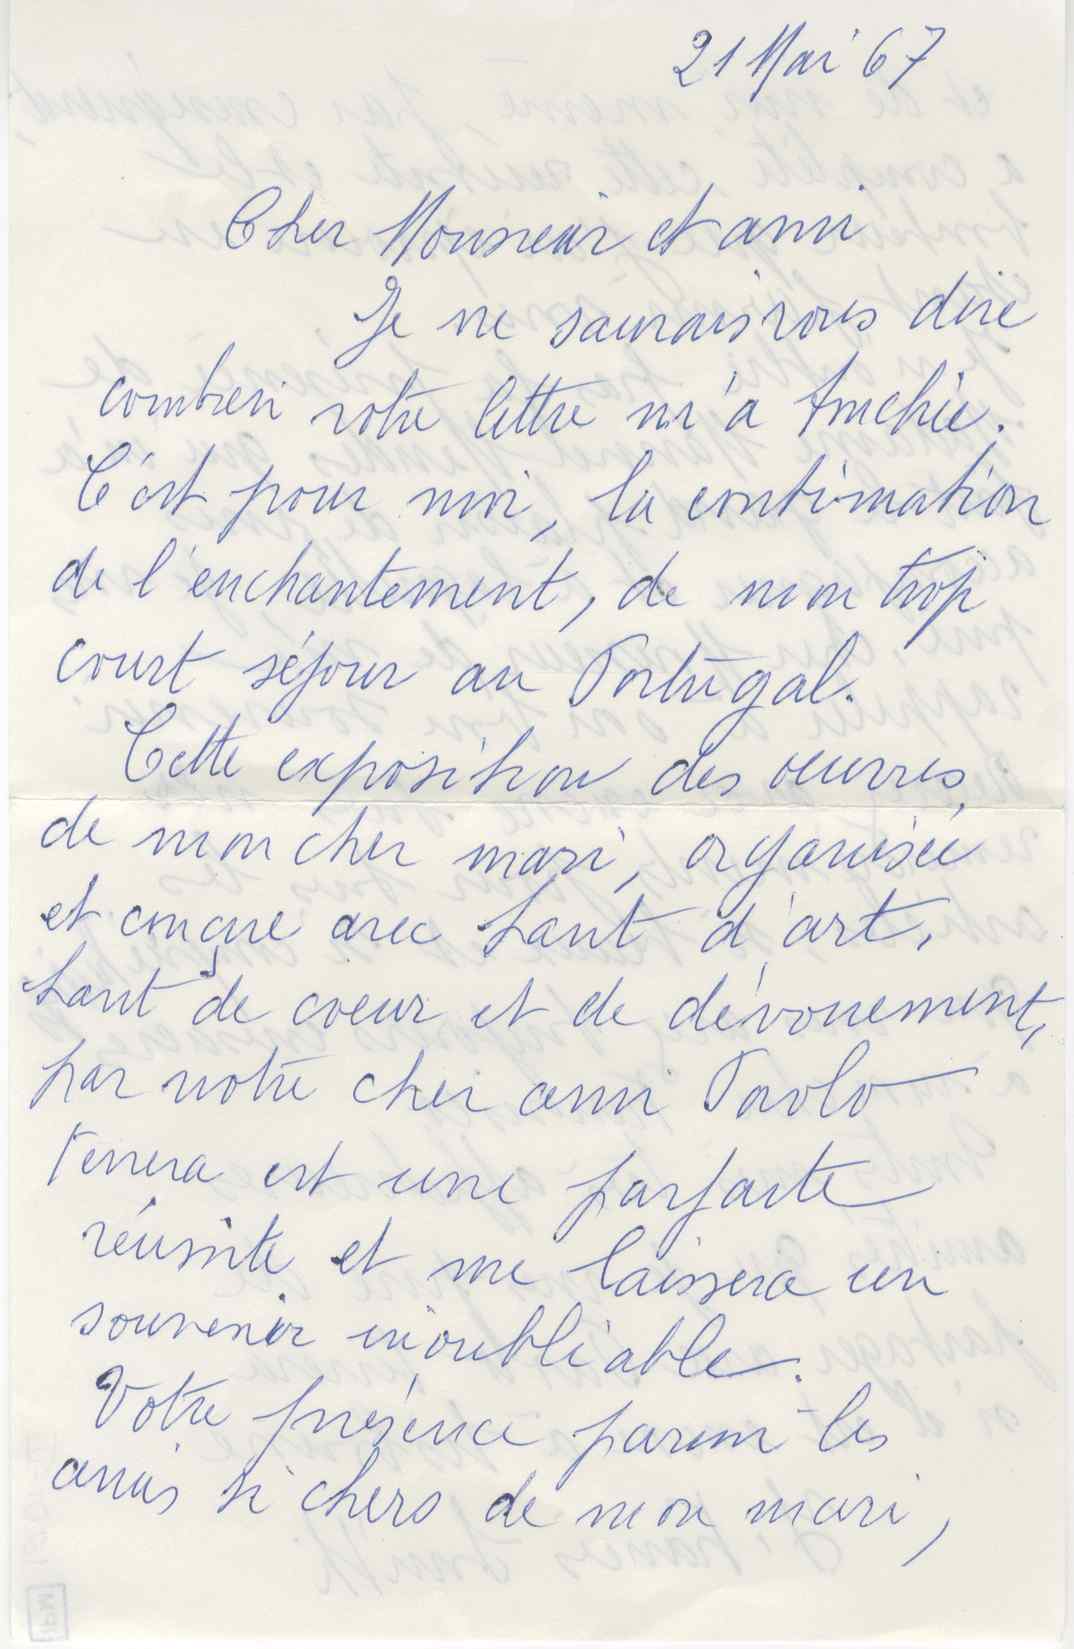 21 Mai 67
Cher Monsieur et ami
Je ne saurais vous dire
combien votre lettre m'a touchée.
C'est pour moi, la continuation
de l'enchantement, de mon trop
court séjour au Portugal.
Cette exposition des oeuvres
de mon cher mari, organisée
et conçue avec tant d'art,
tant de coeur et de dévouement,
par notre cher ami Paolo
Ferreira est une parfaite
réussite et me laissera un
souvenir inoubliable.
Votre présence parmi les
amis si chers de mon mari,